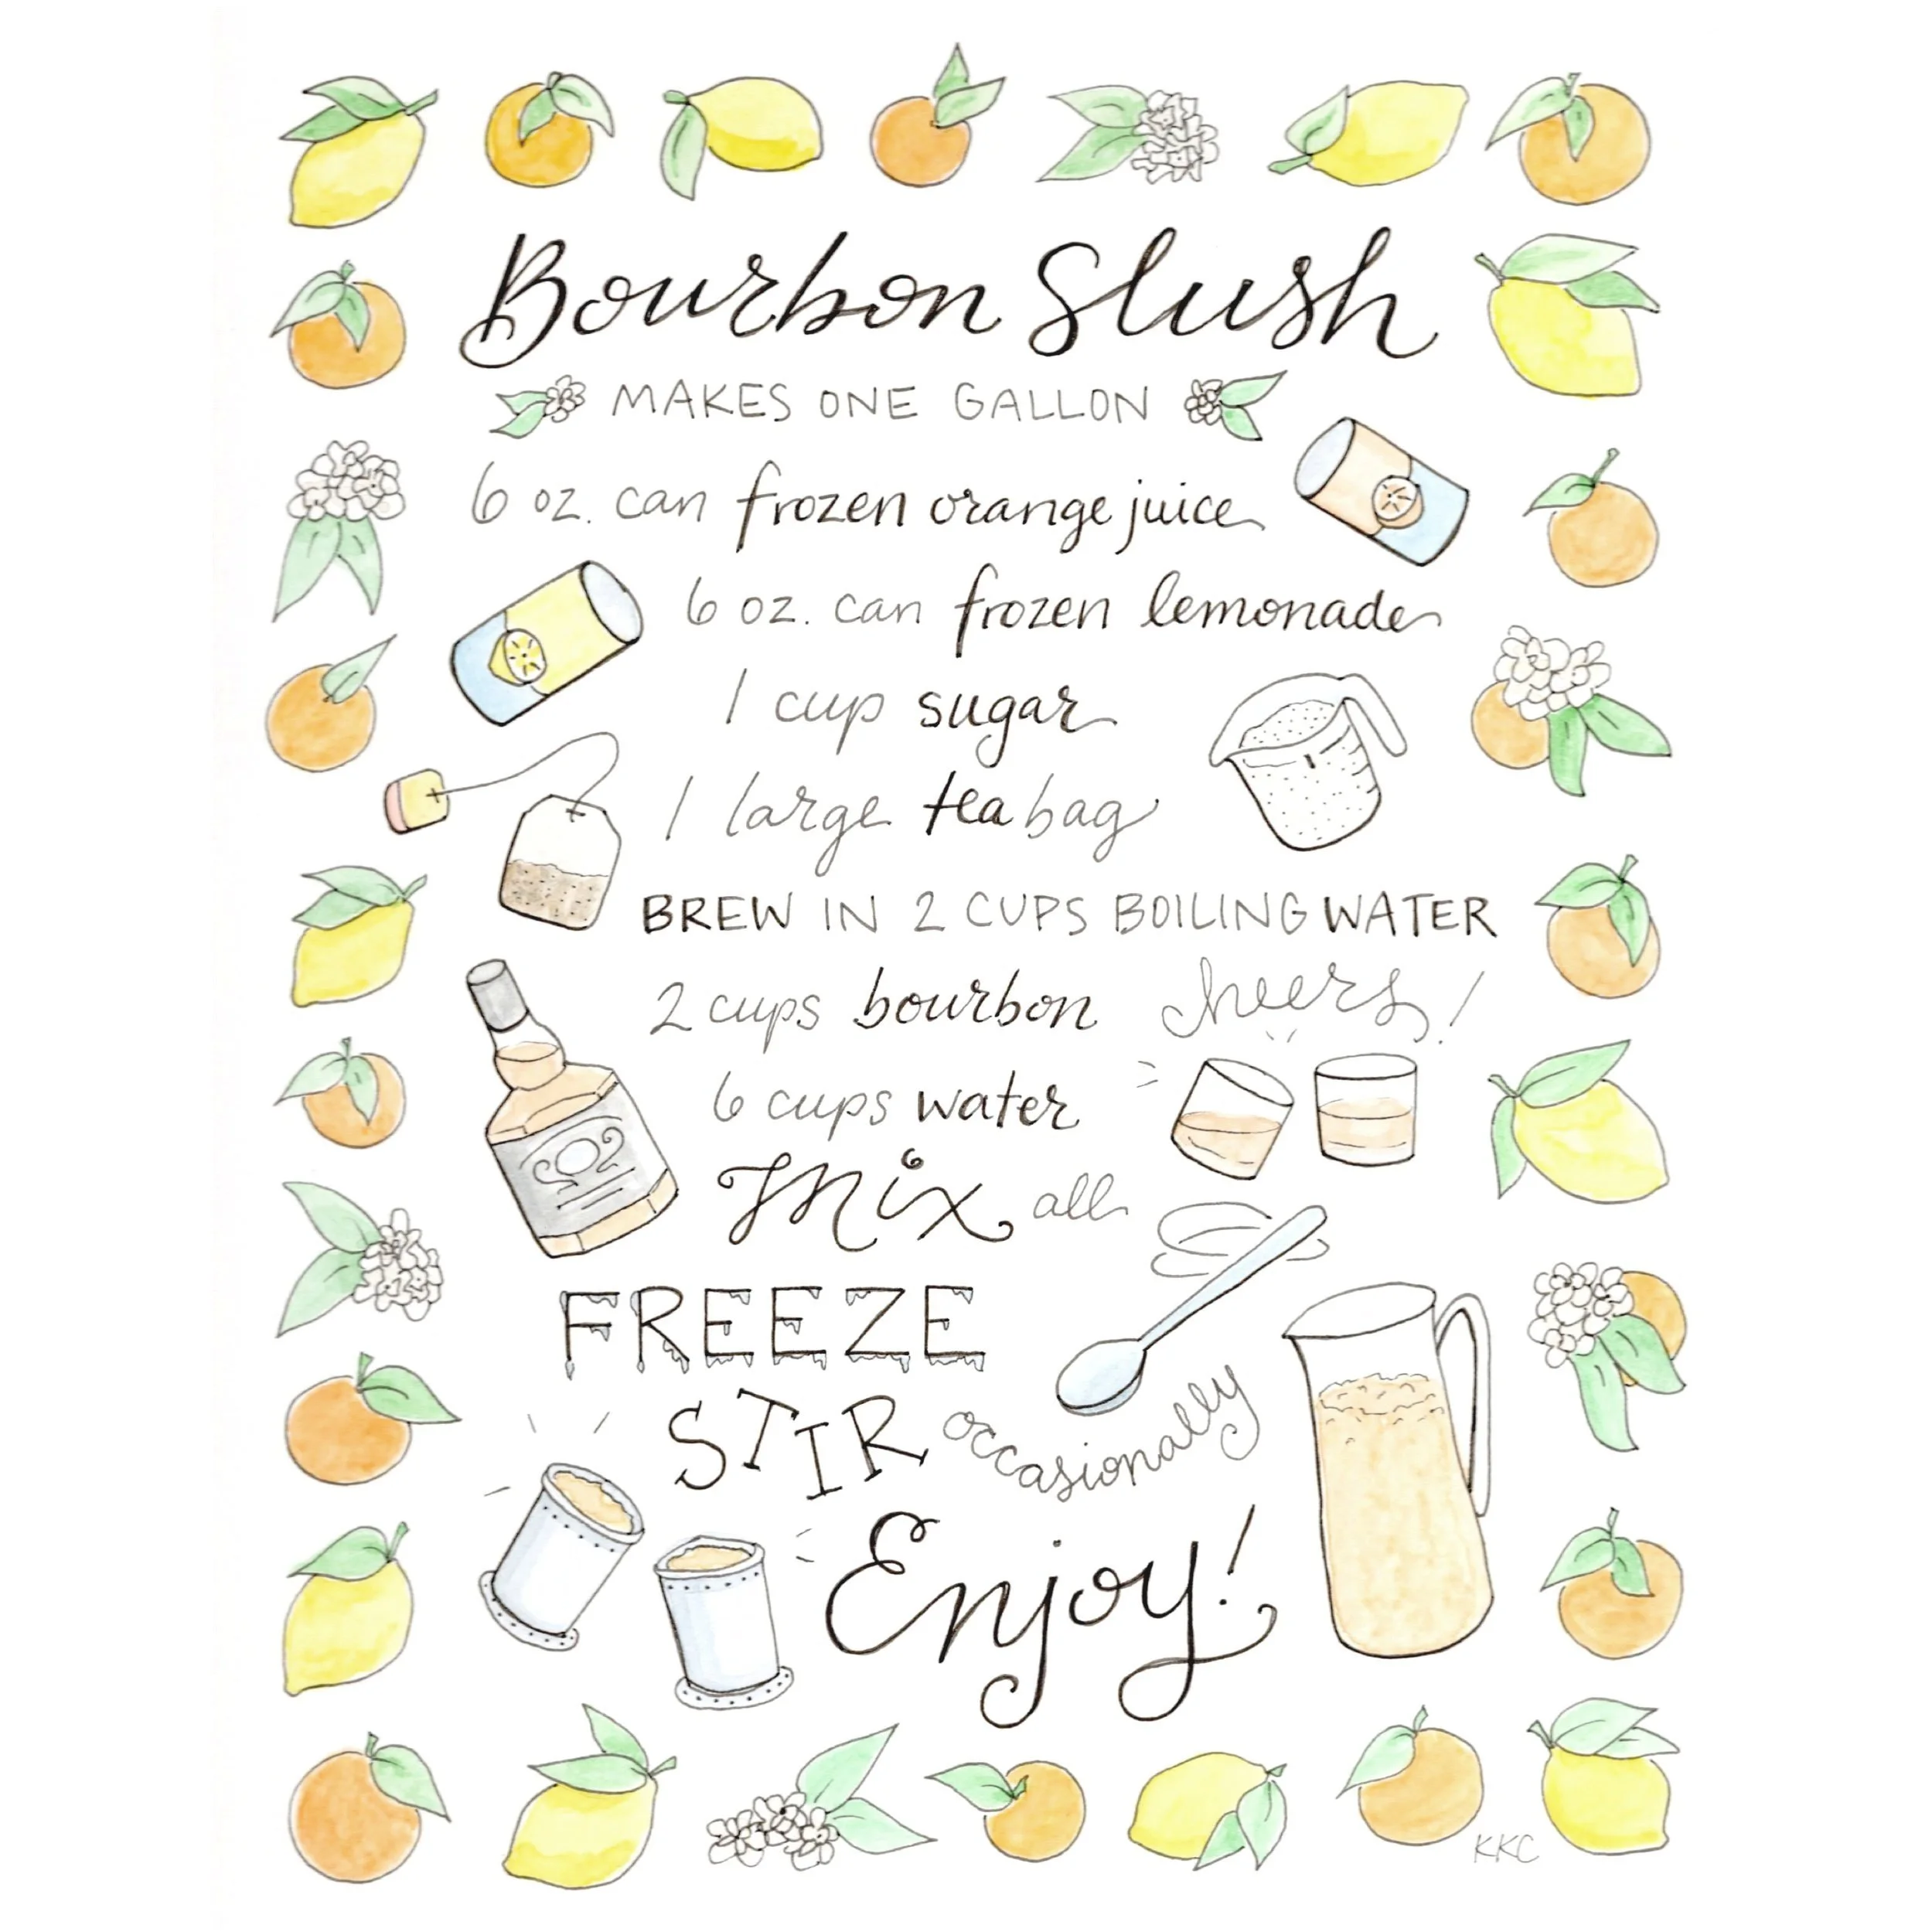 Bourbon Slush
MAKES ONE GALLON
6 oz. can frozen orange juice
6 oz. can frozen lemonade
1 cup sugar
1 large tea bag
BREW IN 2 CUPS BOILING WATER
2 cups bourbon
cheers!
6 cups water
Mix all
FREEZE
STIR occasionally
Enjoy!
KKC